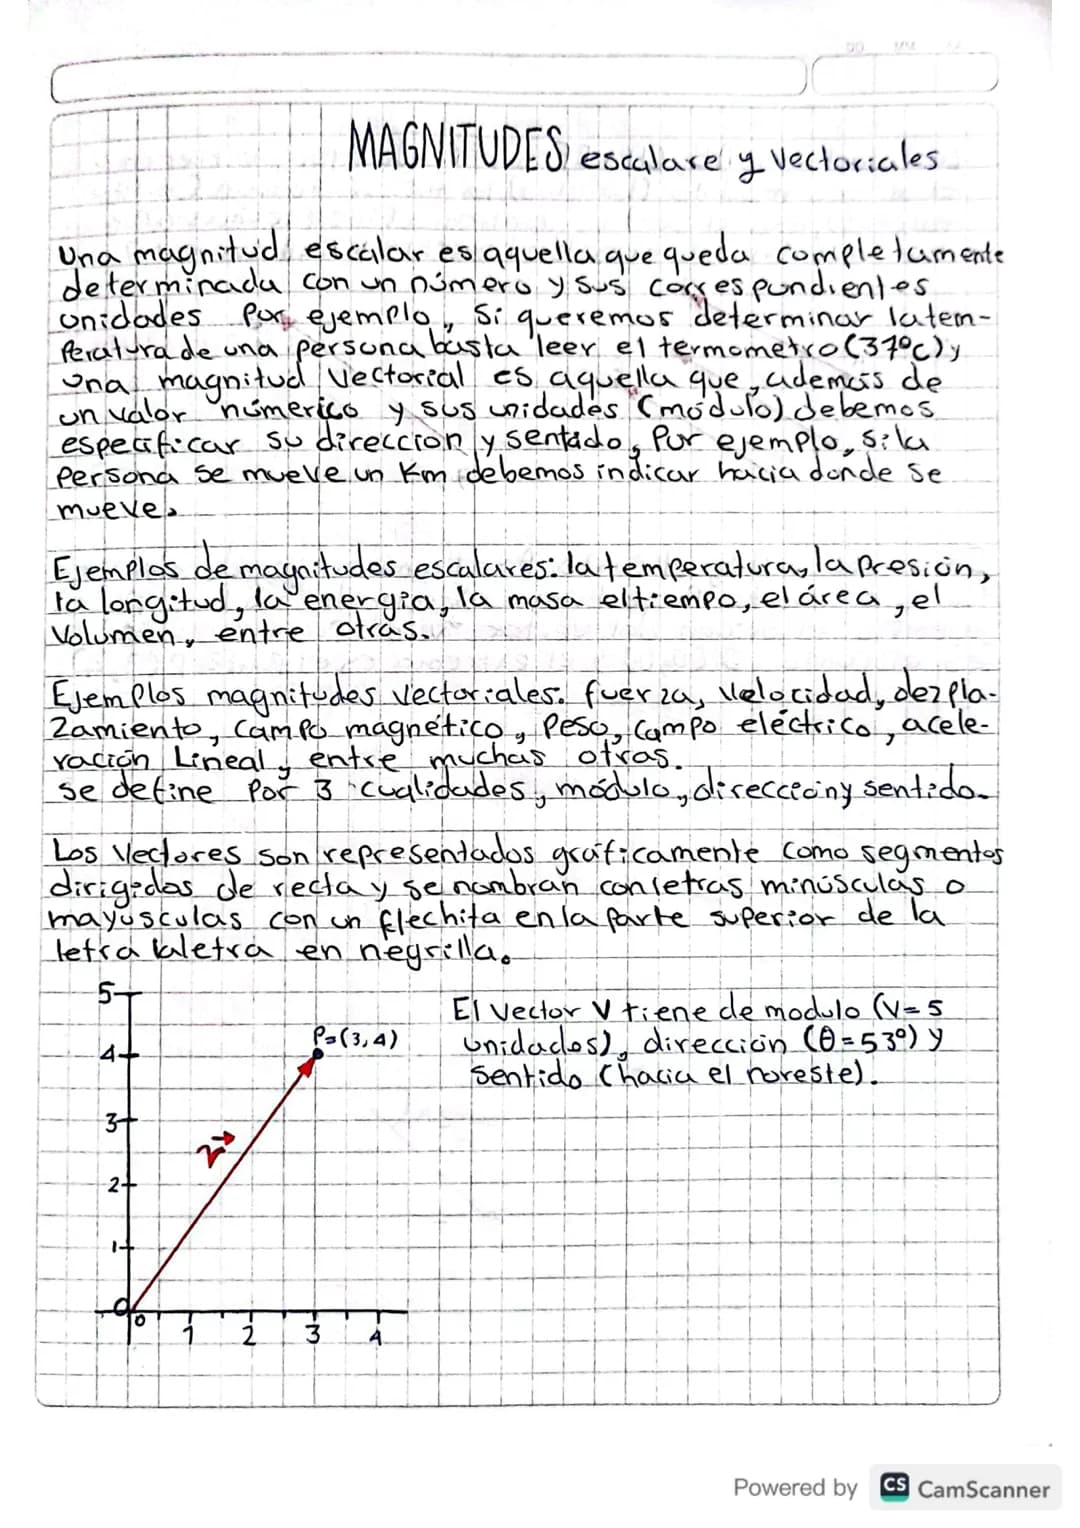 MAGNITUDES escalare y vectoriales
Una magnitud escalar es aquella que queda completamente
determinada con un número y sus correspondientes
unidades Por ejemplo, si queremos determinar la tem-
peratura de una persona basta leer el termometro (37ºc) y
una magnitud Vectorial es aquella que, además de
un valor númerico y sus unidades (módulo) debemos
especificar su direccion y sentido, Por ejemplo, si la
Persona se mueve un Km debemos indicar hacia donde se
mueve.
Ejemplos de magnitudes escalares: la temperatura, la Presión,
la longitud, la energia, la masa el tiempo, el área, el
Volumen, entre otras.
Ejemplos magnitudes vectoriales: fuerza, velocidad, dezpla-
zamiento, campo magnético, Peso, campo eléctrico, acele-
ración Lineal, entre muchas otras.
se define Por 3 cualidades, módulo, direcciony sentido.
Los Vectores son representados gráficamente como segmentos
dirigidos de recta y se nombran con letras minúsculas o
mayúsculas con un flechita en la parte superior de la
letra la letra en negrilla.
El vector V tiene de modulo (V=5
unidades), dirección (θ=53º) y
sentido (hacia el noreste).
5
P=(3,4)
4
3
2
1
0
0 1 2 3 4
Powered by CS CamScanner